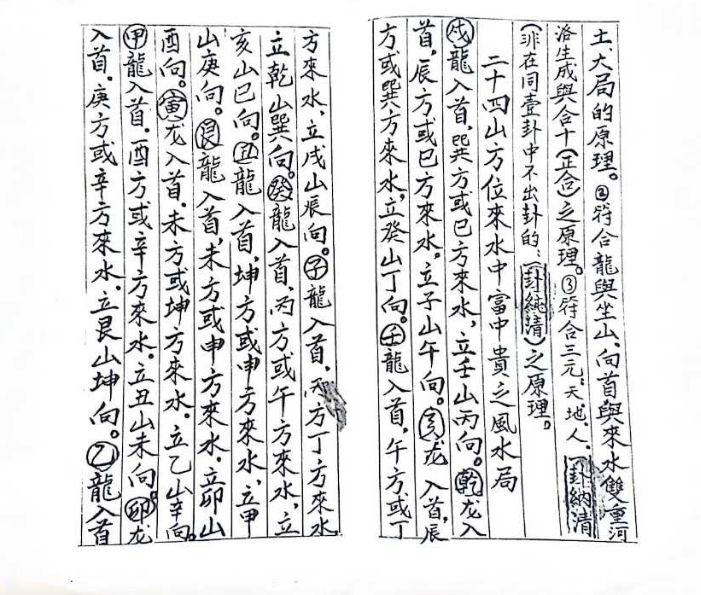 土、大局的原理。②符合龍與坐山、向首與來水雙重河
洛生成與合十(正合)之原理。③符合三元:天、地、人、卦納清
(非在同壹卦中不出卦的:(卦純清)之原理。
二十四山方位來水中富中貴之風水局
戌龍入首,巽方或巳方來水,立壬山丙向。乾龙入
首,辰方或巳方來水。立子山午向。亥龙入首,辰
方或巽方來水,立癸山丁向。壬龍入首,午方或丁
方來水,立戌山辰向。子龍入首,丙方丁方來水
立乾山巽向。癸龍入首,丙方或午方來水,立
亥山巳向。丑龍入首,坤方或申方來水,立甲
山庚向。艮龍入首,未方或申方來水,立卯山
酉向。寅龙入首,未方或坤方來水。立乙山辛向。
甲龍入首。酉方或辛方來水。立丑山未向。卯龙
入首。庚方或辛方來水。立艮山坤向。乙龍入首